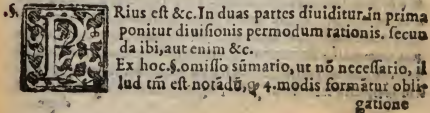 .§. PRius est &c. In duas partes diuiditur. in prima
ponitur diuisionis per modum rationis. secun
da ibi, aut enim &c.
Ex hoc. §. omisso sūmario, ut nō necessario, il
lud tm̄ est notādū, ꝙ 4. modis formātur obli-
gatione